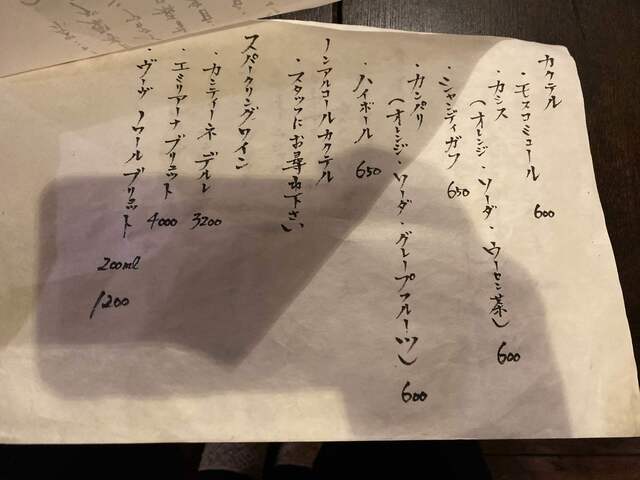 カクテル
・モスコミュール 600
・カシス
(オレンジ・ソーダ・ウーロン茶) 600
・シャンディガフ 650
・カンパリ
(オレンジ・ソーダ・グレープフルーツ) 600
・ハイボール 650
ノンアルコールカクテル
・スタッフにお尋ね下さい
スパークリングワイン
・カンティーネ デルレ 3200
・エミリアーナ ブリュット 4000
・ヴーヴ ノワール ブリュット
200ml
1200